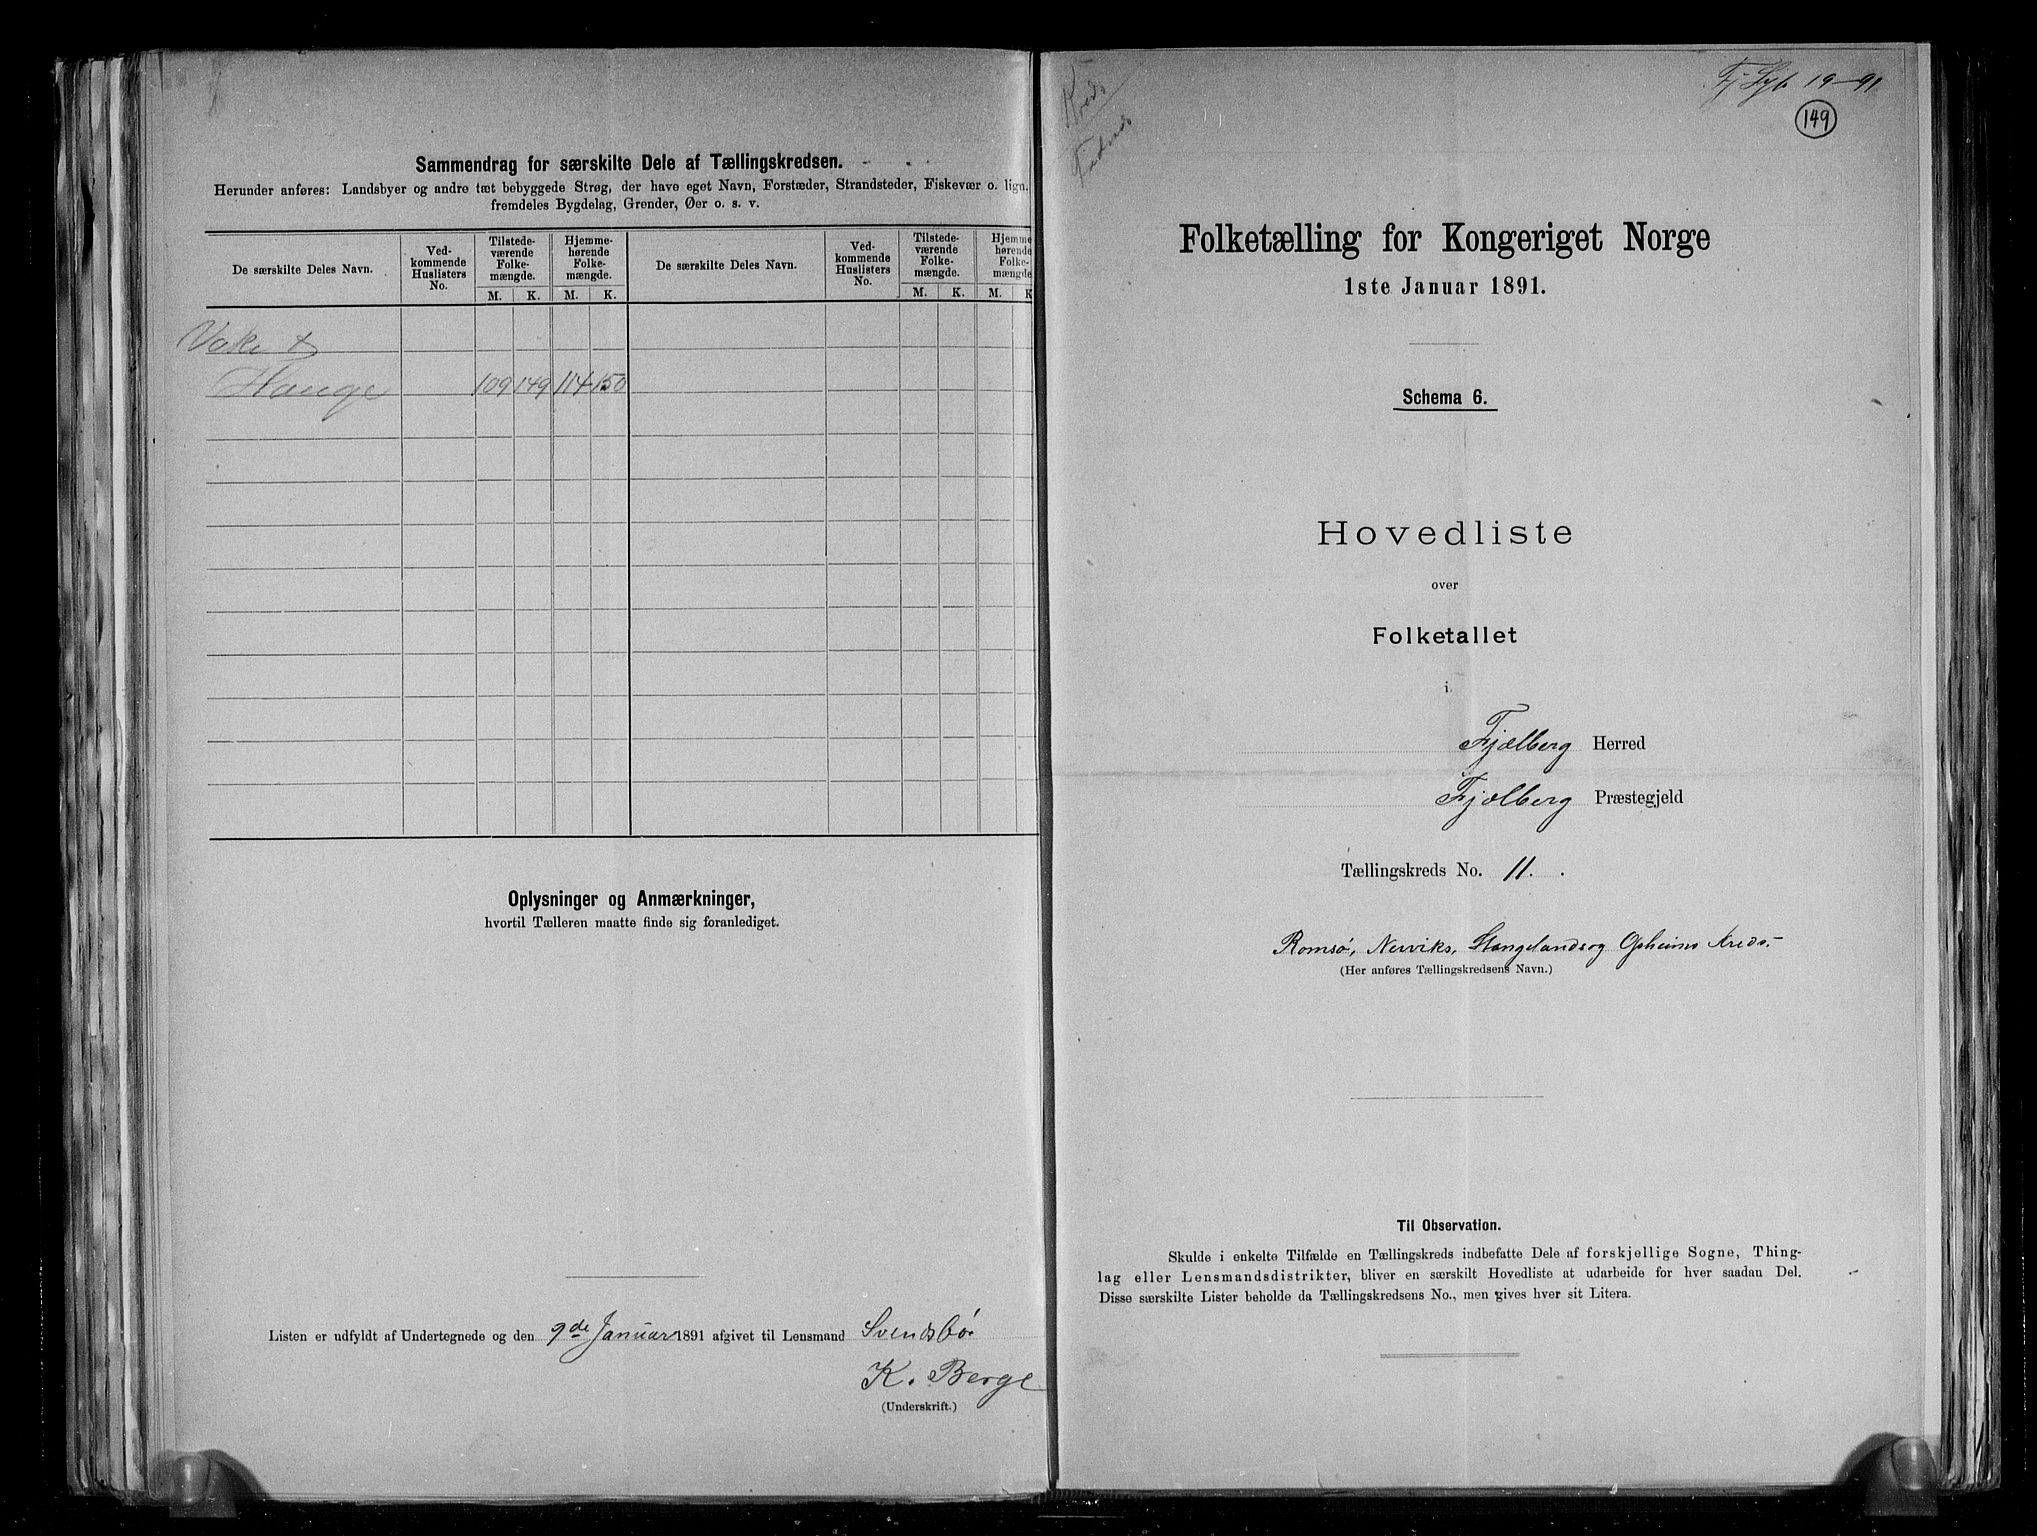 Sammendrag for særskilte Dele af Tællingskredsen.
Herunder anføres: Landsbyer og andre tæt bebyggede Strøg, der have eget Navn, Forstæder, Strandsteder, Fiskevær o. lign.
fremdeles Bygdelag, Grender, Øer o. s. v.
De særskilte Deles Navn.
Ved-
kommende
Huslisters
No.
Tilstede-
værende
Folke-
mængde.
Hjemme-
hørende
Folke-
mængde.
De særskilte Deles Navn.
Ved-
kommende
Huslisters
No.
Tilstede-
værende
Folke-
mængde.
Hjemme
hørende
Folke-
mængde
M. K. M. K. M. K. M. K
Vake &
Hauge 109 149 114 150
Oplysninger og Anmærkninger,
hvortil Tælleren maatte finde sig foranlediget.
Listen er udfyldt af Undertegnede og den 9de Januar 1891 afgivet til Lensmand Svendsbø
K. Berge
(Underskrift.)
Kreds
19-91
149
Folketælling for Kongeriget Norge
1ste Januar 1891.
Schema 6.
Hovedliste
over
Folketallet
i
Fjælberg Herred
Fjælberg Præstegjeld
Tællingskreds No. 11.
Romsø, Nerviks, Stangelands og Opheims Kreds.
(Her anføres Tællingskredsens Navn.)
Til Observation.
Skulde i enkelte Tilfælde en Tællingskreds indbefatte Dele af forskjellige Sogne, Thing-
lag eller Lensmandsdistrikter, bliver en særskilt Hovedliste at udarbeide for hver saadan Del.
Disse særskilte Lister beholde da Tællingskredsens No., men gives hver sit Litera.